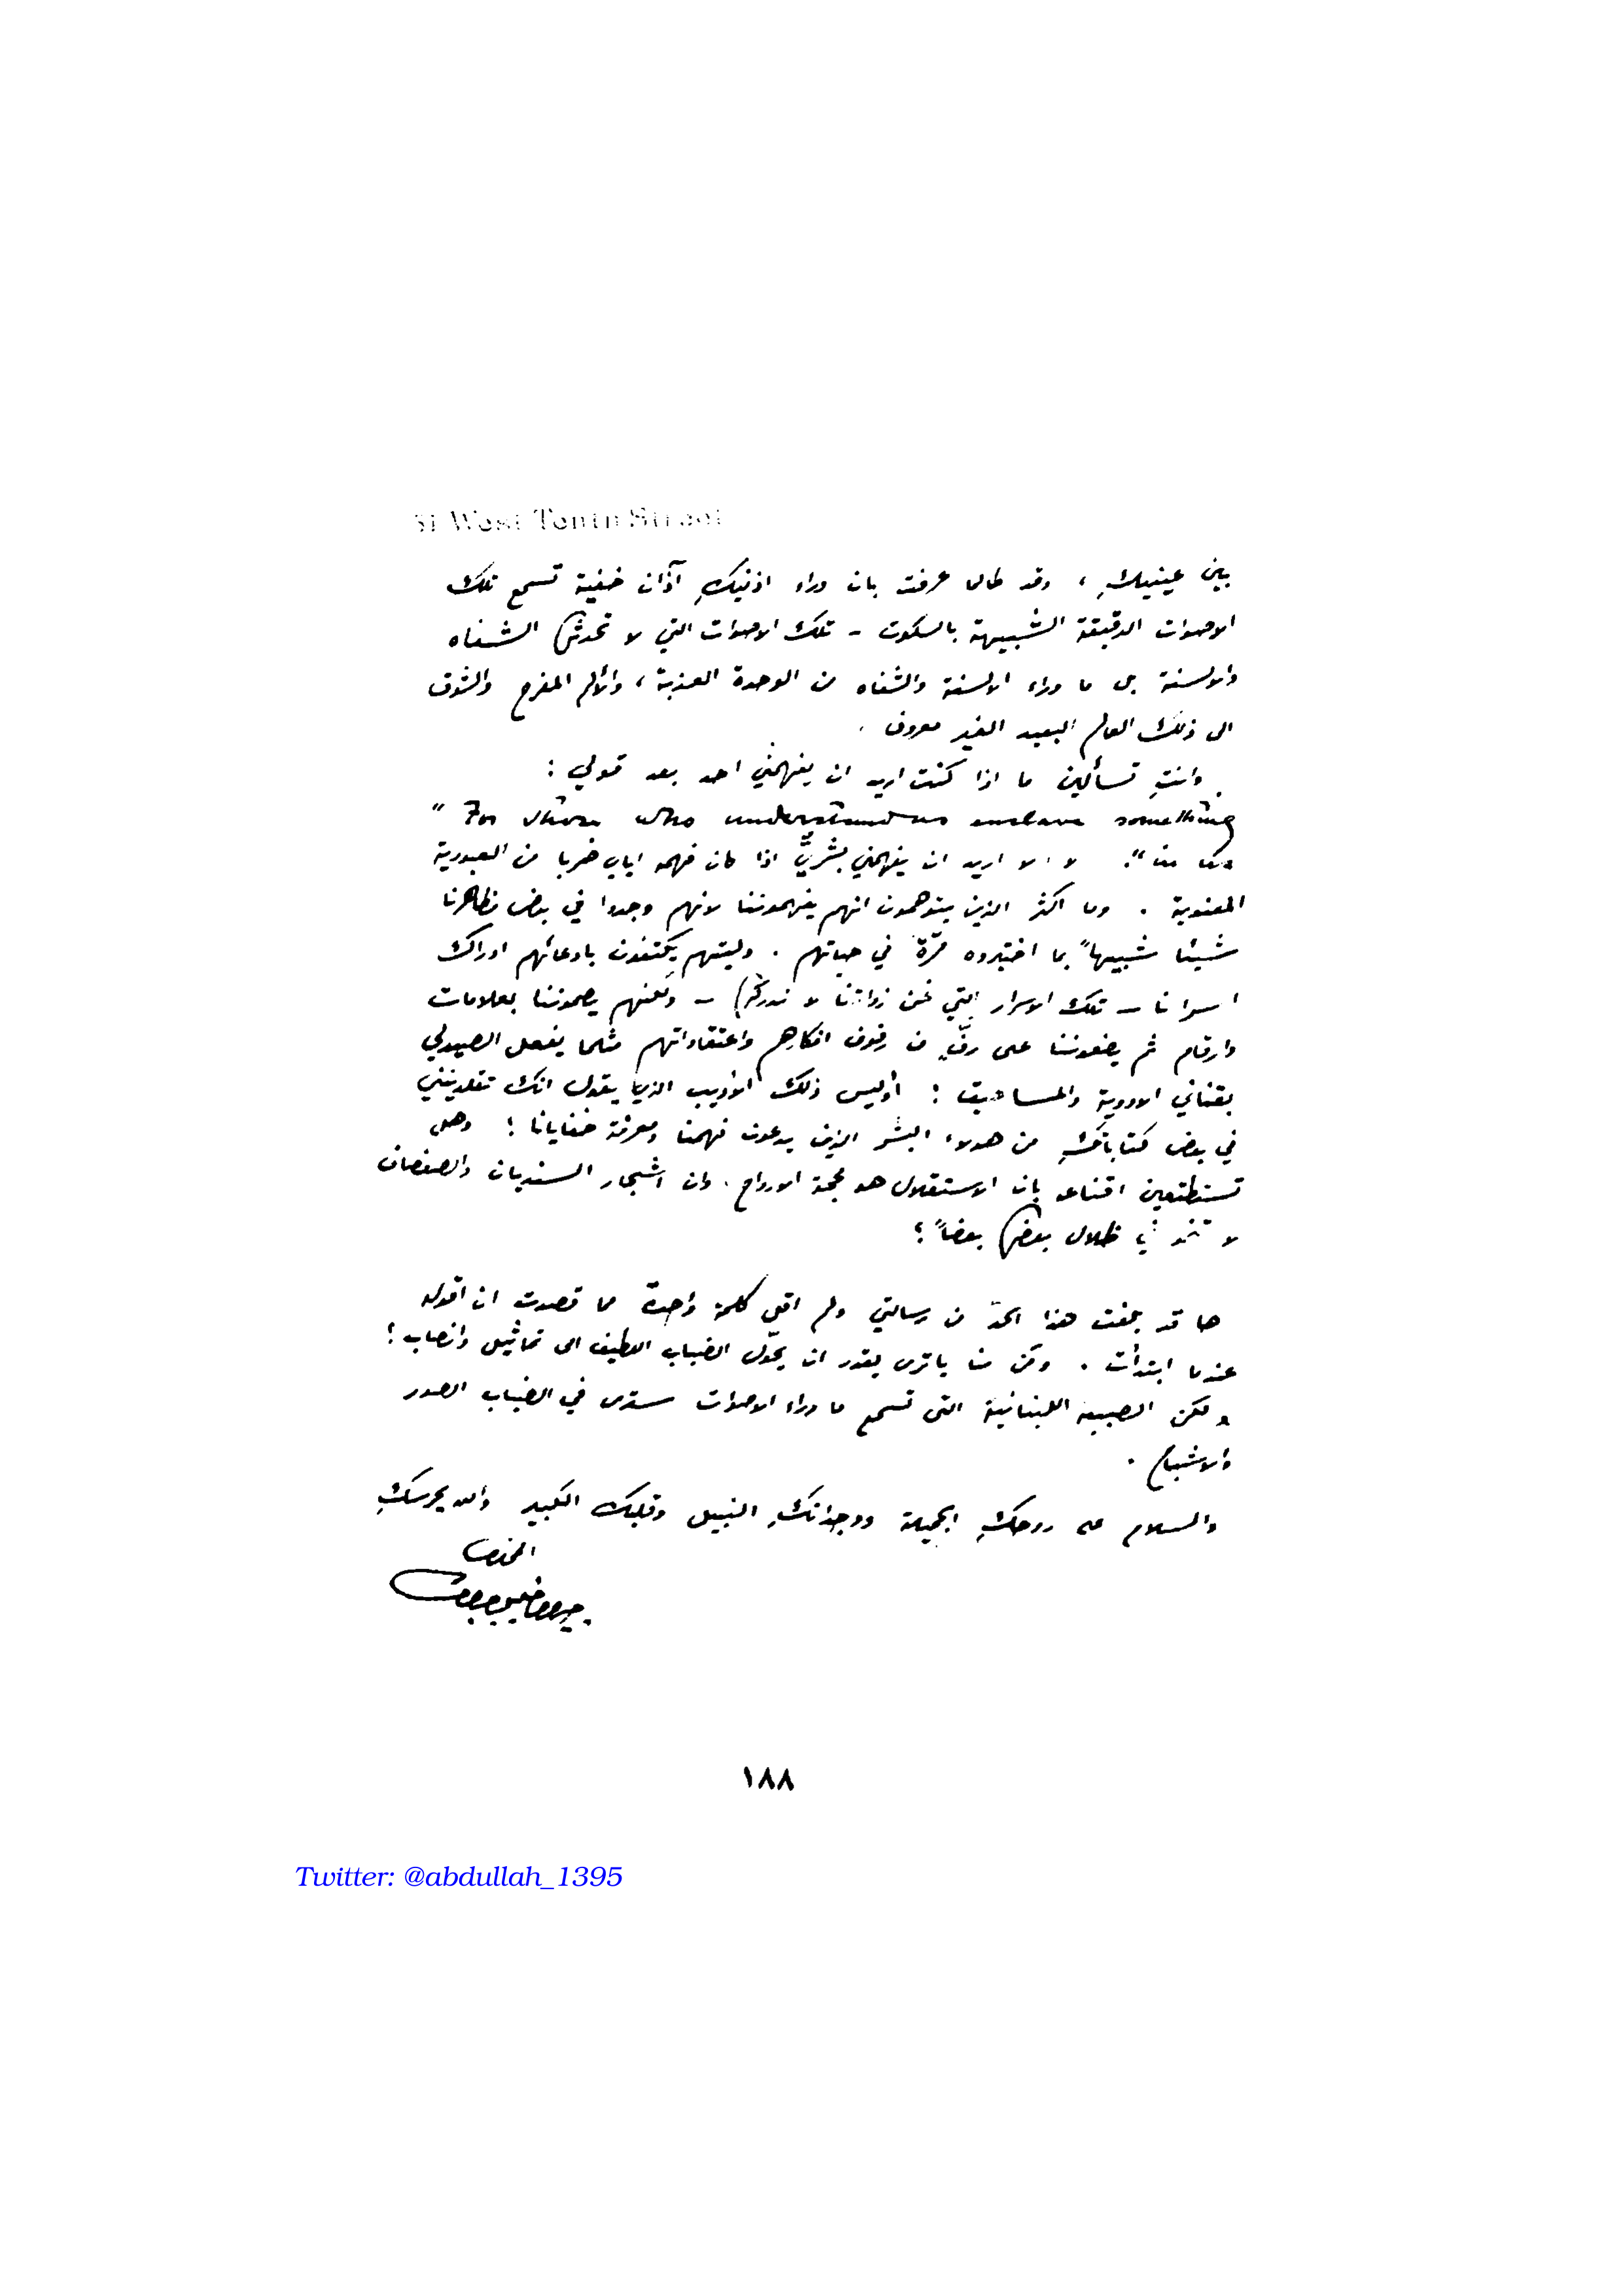 51 West Tenth Street
بين عينيكِ ، وقد طالما عرفت بان وراء اذنيكِ آذان خفية تسمع تلك
الاصوات الدقيقة الشبيهة بالسكوت – تلك الاصوات التي لا تحدثها الشفاه
والالسنة بل ما وراء الالسنة والشفاه من الوحدة العذبة ، والألم المفرح والشوق
الى ذلك العالم البعيد الغير معروف .
وانتِ تسألين ما اذا كنت اريد ان يفهمني احد بعد قولي :
" For those who understand us enslave something
in us ". لا ، لا اريد ان يفهمني بشريٌّ اذا كان فهمه اياي ضربا من العبودية
المعنوية . وما اكثر الذين يتوهمون انهم يفهموننا لانهم وجدوا في بعض مظاهرنا
شيئا شبيهاً بما اختبروه مرّة في حياتهم . وليتهم يكتفون بادعائهم ادراك
اسرارنا – تلك الاسرار التي نحن ذواتنا لا ندركها – ولكنهم يصموننا بعلامات
وارقام ثم يضعوننا على رفّ من رفوف افكارهم واعتقاداتهم مثلما يفعل الصيدلي
بقناني الادوية والمساحيق ! أوليس ذلك الأديب الذي يقول انك تقلدينني
في بعض كتاباتكِ من هولاء البشر الذين يدعون فهمنا ومعرفة خفايانا ؟ وهل
تستطيعين اقناعه بان الاستقلال هو محجة الارواح . وان اشجار السنديان والصفصاف
لا تنمو في ظلال بعضها بعضاً ؟
ها قد بلغت هذا الحدّ من رسالتي ولم اقل كلمة واحدة مما قصدت ان اقوله
عندما ابتدأت . ومن منا يا ترى يقدر ان يحوّل الضباب اللطيف الى تماثيل وانصاب ؟
ولكن الصبية اللبنانية التي تسمع ما وراء الاصوات سترى في الضباب الصور
والاشباح .
والسلام على روحكِ الجميلة ووجدانكِ النبيل وقلبك الكبير والله يحرسكِ
المخلص
جبران خليل جبران
١٨٨
Twitter: @abdullah_1395